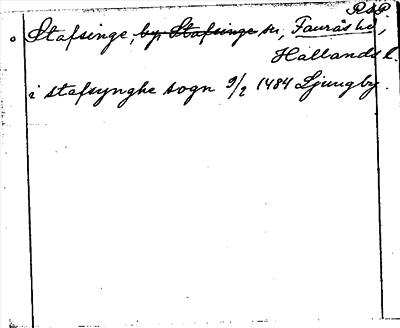 R.S.P.
Stafsinge, by, Stafsinge sn, Faurås hd,
Hallands l.
i stafsynghe sogn 9/2 1484 Ljungby.